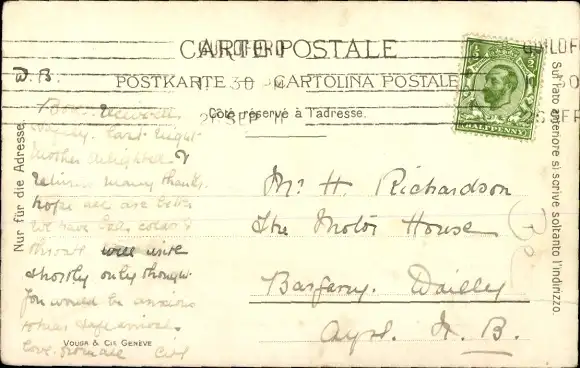 CARTE POSTALE
GUILDFORD
D. B.
POSTKARTE CARTOLINA POSTALE
30
25 SEP
Côté réservé à l'adresse.
Nur für die Adresse.
Sul lato anteriore si scrive soltanto l'indirizzo.
HALFPENNY
Box received
last night
Mother delighted &
returns many thanks.
hope all are better
we have both colds &
throats will write
shortly only thought
you would be anxious
to hear safe arrival.
love from all
Mr. H. Richardson
The Motor House
Bargany. Dailly
Ayr. N. B.
VOUGA & CIE GENÈVE